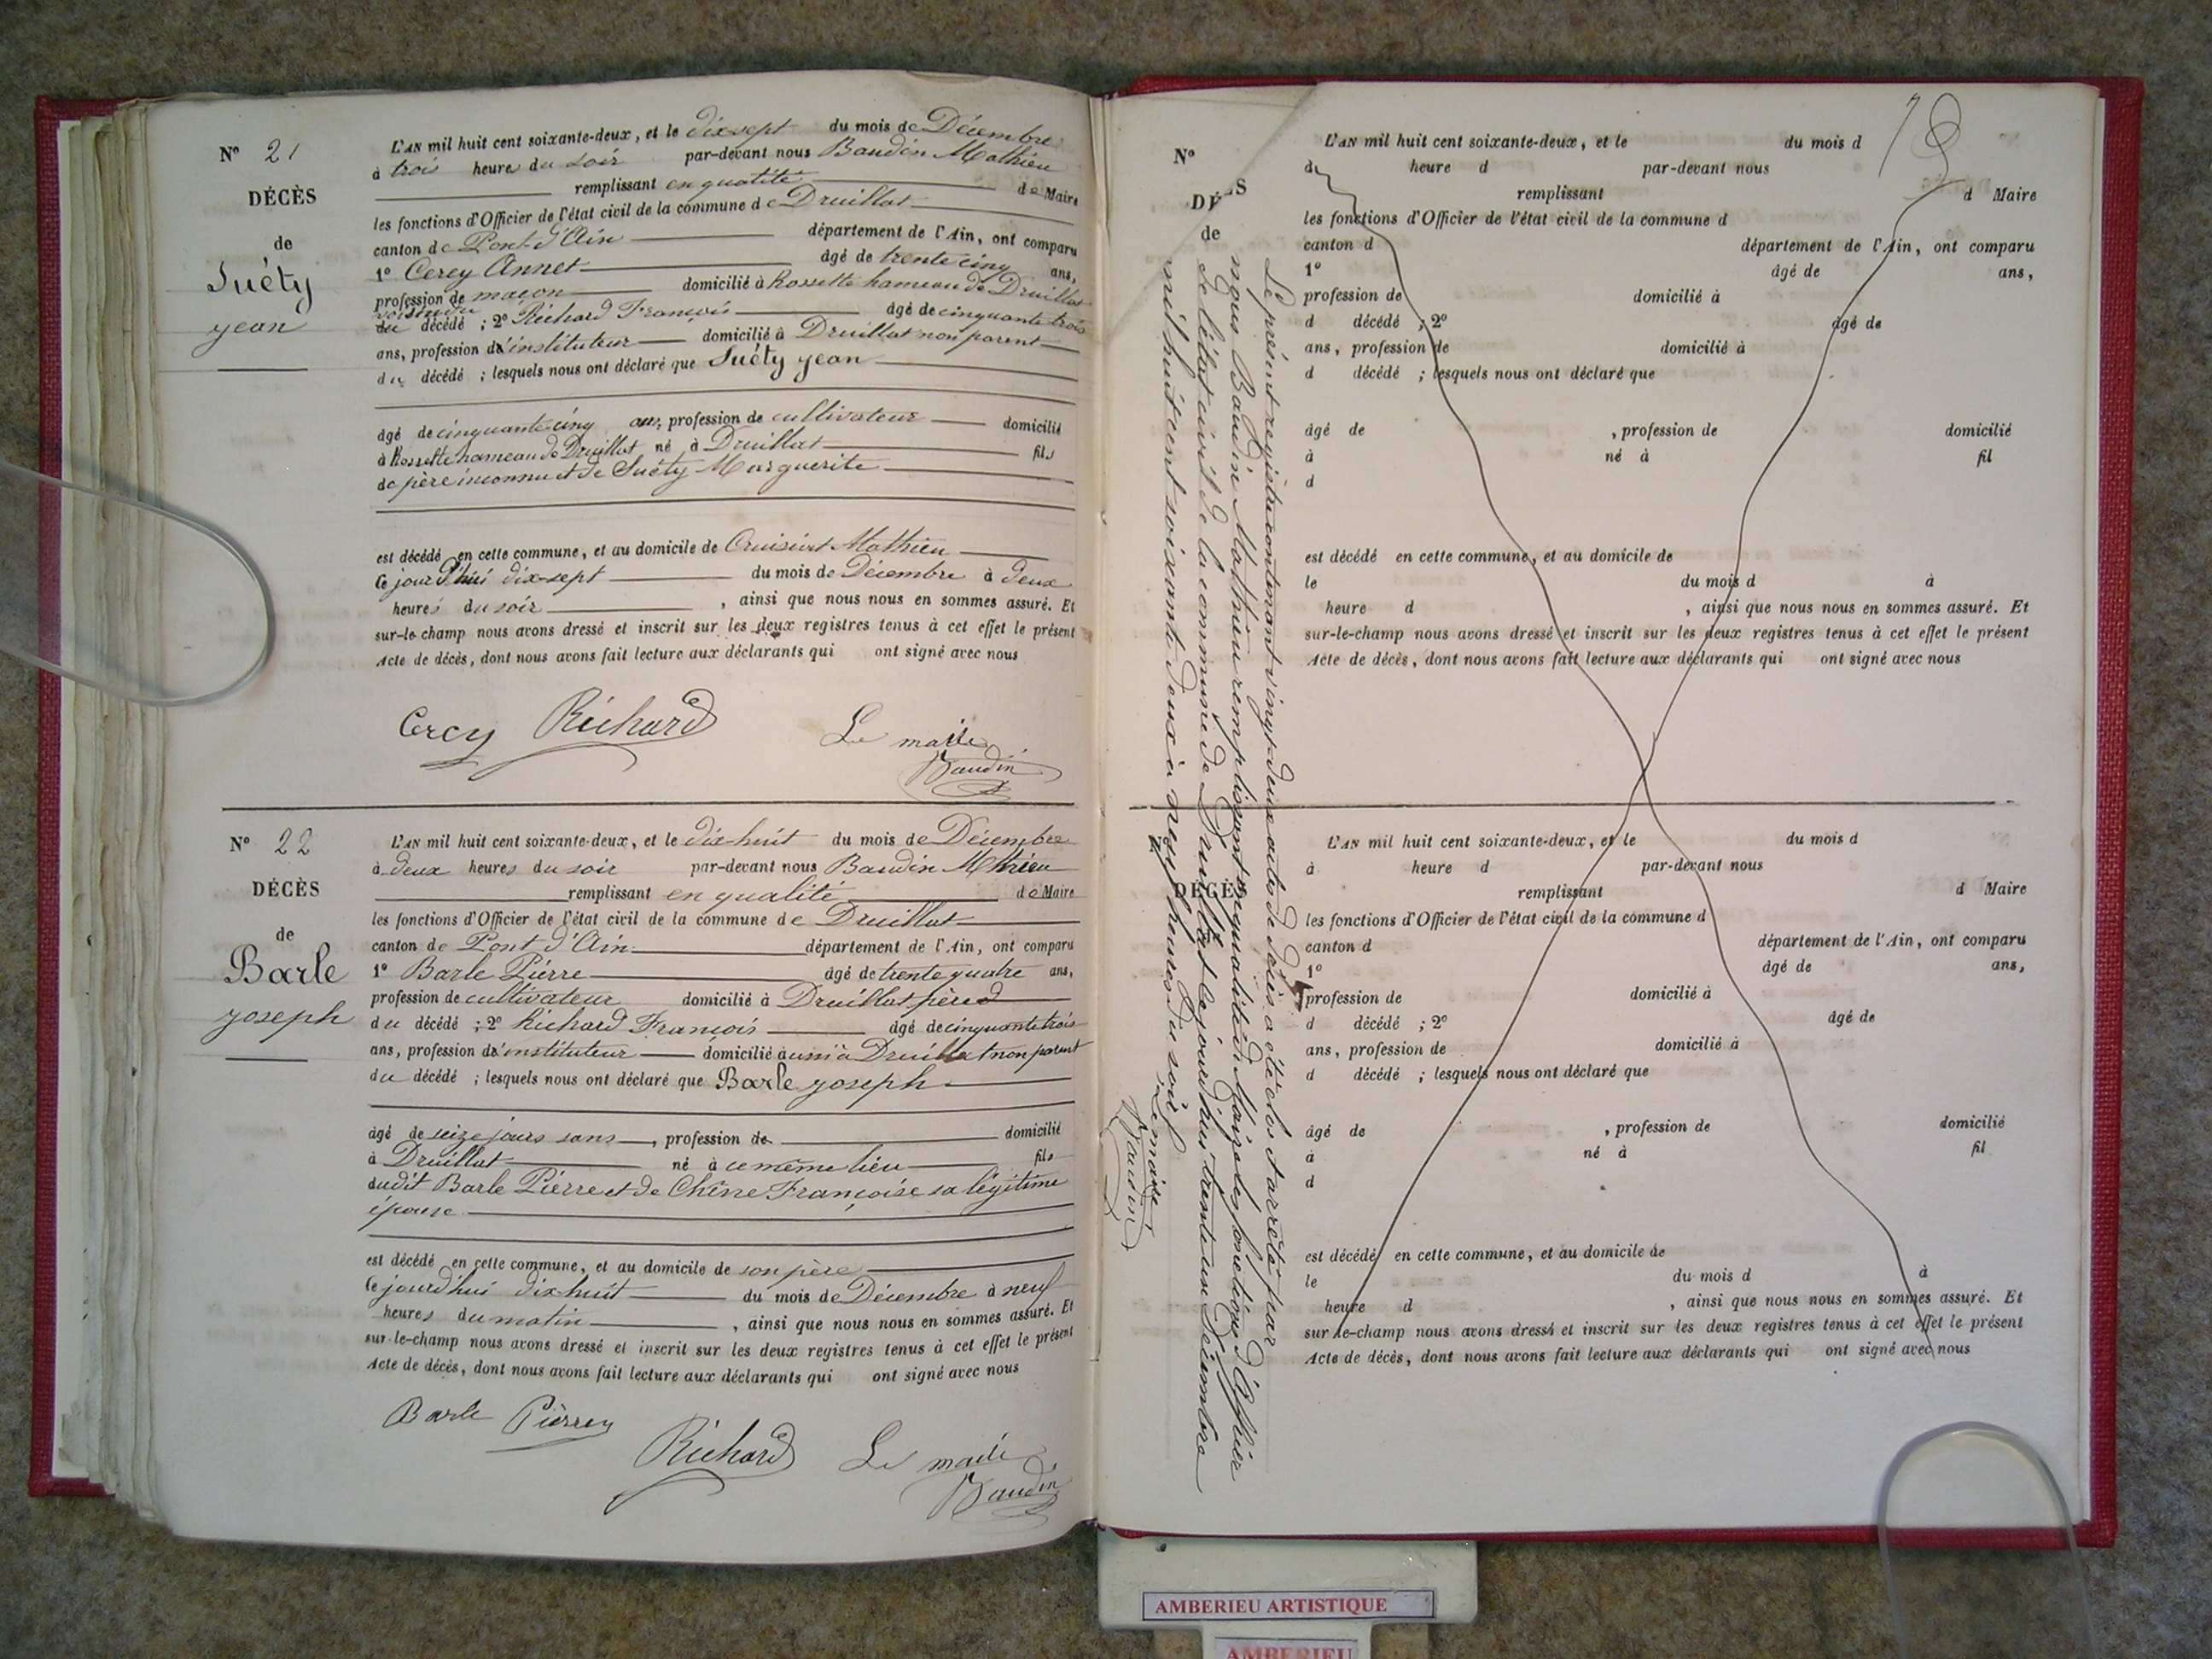 N° 21
DÉCÈS
de
Suéty
yean
L'AN mil huit cent soixante-deux, et le dix-sept du mois de Décembre
à trois heures du soir par-devant nous Baudin Mathieu
remplissant en qualité de Maire
les fonctions d'Officier de l'état civil de la commune de Druillat
canton de Pont d'Ain département de l'Ain, ont comparu
1° Cercy Annet âgé de trente cinq ans,
profession de maçon domicilié à Rossette hameau de Druillat
voisin du
du décédé ; 2° Richard François âgé de cinquante trois
ans, profession d'instituteur domicilié à Druillat non parent
du décédé ; lesquels nous ont déclaré que Suéty yean
âgé de cinquante cinq ans, profession de cultivateur domicilié
à Rossette hameau de Druillat né à Druillat fils
de père inconnu et de Suéty Marguerite
est décédé en cette commune, et au domicile de Mathieu
Ce jourd'hui dix-sept du mois de Décembre à deux
heures du soir , ainsi que nous nous en sommes assuré. Et
sur-le-champ nous avons dressé et inscrit sur les deux registres tenus à cet effet le présent
Acte de décès, dont nous avons fait lecture aux déclarants qui ont signé avec nous
Cercy Richard Le maire
Baudin
N° 22
DÉCÈS
de
Barle
yoseph
L'AN mil huit cent soixante-deux, et le dix-huit du mois de Décembre
à deux heures du soir par-devant nous Baudin Mathieu
remplissant en qualité de Maire
les fonctions d'Officier de l'état civil de la commune de Druillat
canton de Pont d'Ain département de l'Ain, ont comparu
1° Barle Pierre âgé de trente quatre ans,
profession de cultivateur domicilié à Druillat père
du décédé ; 2° Richard François âgé de cinquante trois
ans, profession d'instituteur domicilié aussi à Druillat non parent
du décédé ; lesquels nous ont déclaré que Barle yoseph
âgé de seize jours sans , profession de domicilié
à Druillat né à ce même lieu fils
dudit Barle Pierre et de Chêne Françoise sa légitime
épouse
est décédé en cette commune, et au domicile de son père
Ce jourd'hui dix-huit du mois de Décembre à neuf
heures du matin , ainsi que nous nous en sommes assuré. Et
sur-le-champ nous avons dressé et inscrit sur les deux registres tenus à cet effet le présent
Acte de décès, dont nous avons fait lecture aux déclarants qui ont signé avec nous
Barle Pierre
Richard Le maire
Baudin
Le présent registre contenant vingt-deux actes de décès a été clos et arrêté par
nous Baudin Mathieu remplissant en qualité de Maire les fonctions d'officier
de l'état civil de la commune de Druillat le jourd'hui trente un Décembre
mil huit cent soixante deux à neuf heures du soir
Le maire
Baudin
N°
DÉCÈS
de
L'AN mil huit cent soixante-deux, et le du mois d
à heure d par-devant nous
remplissant d Maire
les fonctions d'Officier de l'état civil de la commune d
canton d département de l'Ain, ont comparu
1° âgé de ans,
profession de domicilié à
d décédé ; 2° âgé de
ans, profession de domicilié à
d décédé ; lesquels nous ont déclaré que
âgé de , profession de domicilié
à né à fil
d
est décédé en cette commune, et au domicile de
le du mois d à
heure d , ainsi que nous nous en sommes assuré. Et
sur-le-champ nous avons dressé et inscrit sur les deux registres tenus à cet effet le présent
Acte de décès, dont nous avons fait lecture aux déclarants qui ont signé avec nous
N
DÉCÈS
L'AN mil huit cent soixante-deux, et le du mois d
à heure d par-devant nous
remplissant d Maire
les fonctions d'Officier de l'état civil de la commune d
canton d département de l'Ain, ont comparu
1° âgé de ans,
profession de domicilié à
d décédé ; 2° âgé de
ans, profession de domicilié à
d décédé ; lesquels nous ont déclaré que
âgé de , profession de domicilié
à né à fil
d
est décédé en cette commune, et au domicile de
le du mois d à
heure d , ainsi que nous nous en sommes assuré. Et
sur-le-champ nous avons dressé et inscrit sur les deux registres tenus à cet effet le présent
Acte de décès, dont nous avons fait lecture aux déclarants qui ont signé avec nous
AMBERIEU ARTISTIQUE
AMBERIEU